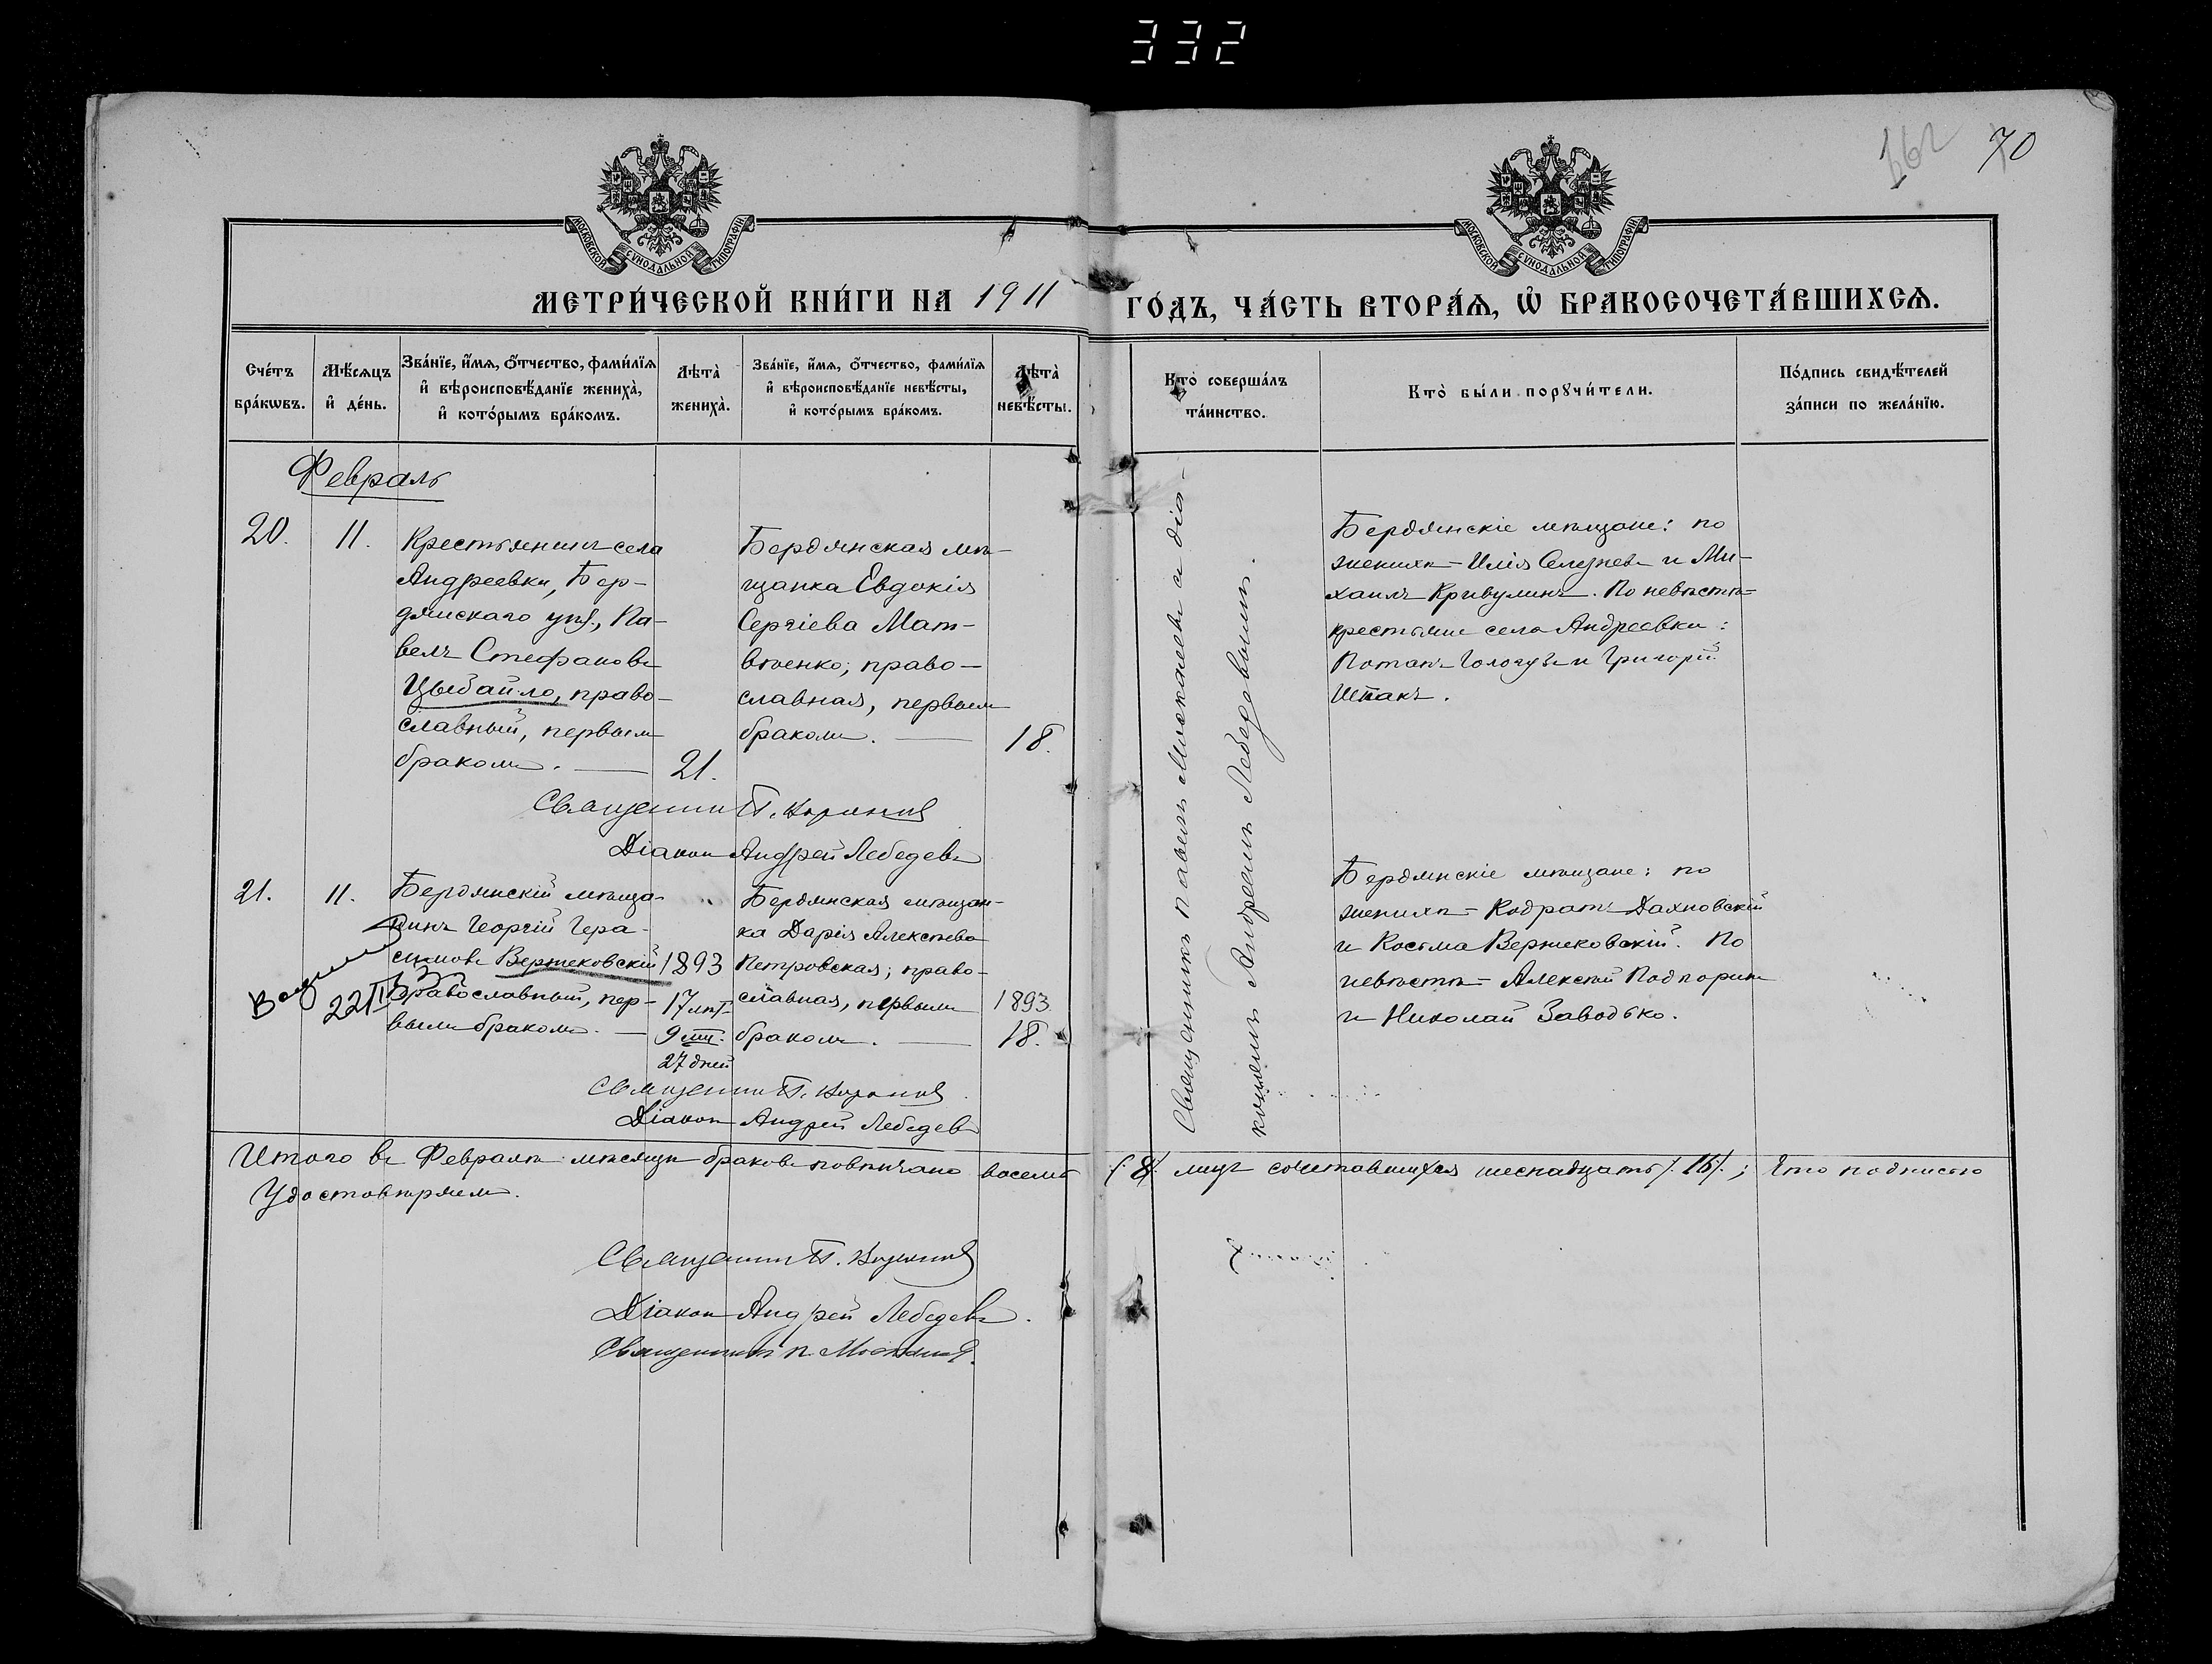 332
162 70
МОСКОВСКОЙ СѴНОДАЛЬНОЙ ТИПОГРАФІИ
МОСКОВСКОЙ СѴНОДАЛЬНОЙ ТИПОГРАФІИ
МЕТРИ́ЧЕСКОЙ КНИ́ГИ НА 1911 ГО́ДЪ, ЧА́СТЬ ВТОРА́Ѧ, Ѽ БРАКОСОЧЕТА́ВШИХСѦ.
Сче́тъ
бра́кѡвъ.
Мѣ́сѧцъ
и҆ де́нь.
Зва́нїе, и҆́мѧ, ѻ҆́тчество, фами́лїѧ
и҆ вѣроисповѣ́данїе жениха̀,
и҆ кото́рымъ бра́комъ.
Лѣта̀
жениха̀.
Зва́нїе, и҆́мѧ, ѻ҆́тчество, фами́лїѧ
и҆ вѣроисповѣ́данїе невѣ́сты,
и҆ кото́рымъ бра́комъ.
Лѣта̀
невѣ́сты.
Кто̀ соверша́лъ
та́инство.
Кто̀ бы́ли порꙋчи́тели.
По́дпись свидѣ́телей
за́писи по жела́нїю.
Февраль
20.
11.
Крестьянинъ села
Андреевки, Бер-
дянскаго уѣз., Па-
велъ Стефановъ
Цыбайло, право-
славный, первымъ
бракомъ. —
21.
Бердянская мѣ-
щанка Евдокія
Сергіева Мат-
вѣенко; право-
славная, первымъ
бракомъ. —
18.
Священникъ П.
Діаконъ Андрей Лебедевъ
Священникъ Павелъ а діа-
кономъ Андреемъ Лебедевымъ.
Бердянскіе мѣщане: по
женихѣ - Илія Селезневъ и Ми-
хаилъ Кривулинъ. По невѣстѣ =
крестьяне села Андреевки:
Потапъ Гологузъ и Григорій
Шпакъ.
21.
11.
Бердянскій мѣща-
нинъ Георгій Гера-
симовъ Вержековскій
православный, пер-
вымъ бракомъ. —
22
1893
17 лѣт
9 мц.
27 дней
Бердянская мѣщан-
ка Дарія Алексѣева
Петровская; право-
славная, первымъ
бракомъ. —
1893.
18.
Священникъ П.
Діаконъ Андрей Лебедевъ
Бердянскіе мѣщане: по
женихѣ = Кодратъ Дахновскій
и Косьма Вержековскій. По
невѣстѣ = Алексѣй Подпорин
и Николай Заводько.
Итого въ Февралѣ мѣсяцѣ браковъ повѣнчано восемь (:8:) лицъ сочетавшихся шеснадцать (:16:); Что подписью
Удостовѣряемъ.
Священникъ П.
Діаконъ Андрей Лебедевъ.
Священникъ П.